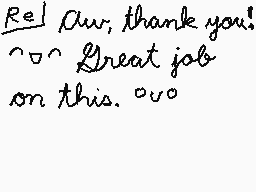 Re Aw, thank you!
^▽^ Great job
on this. ^o^